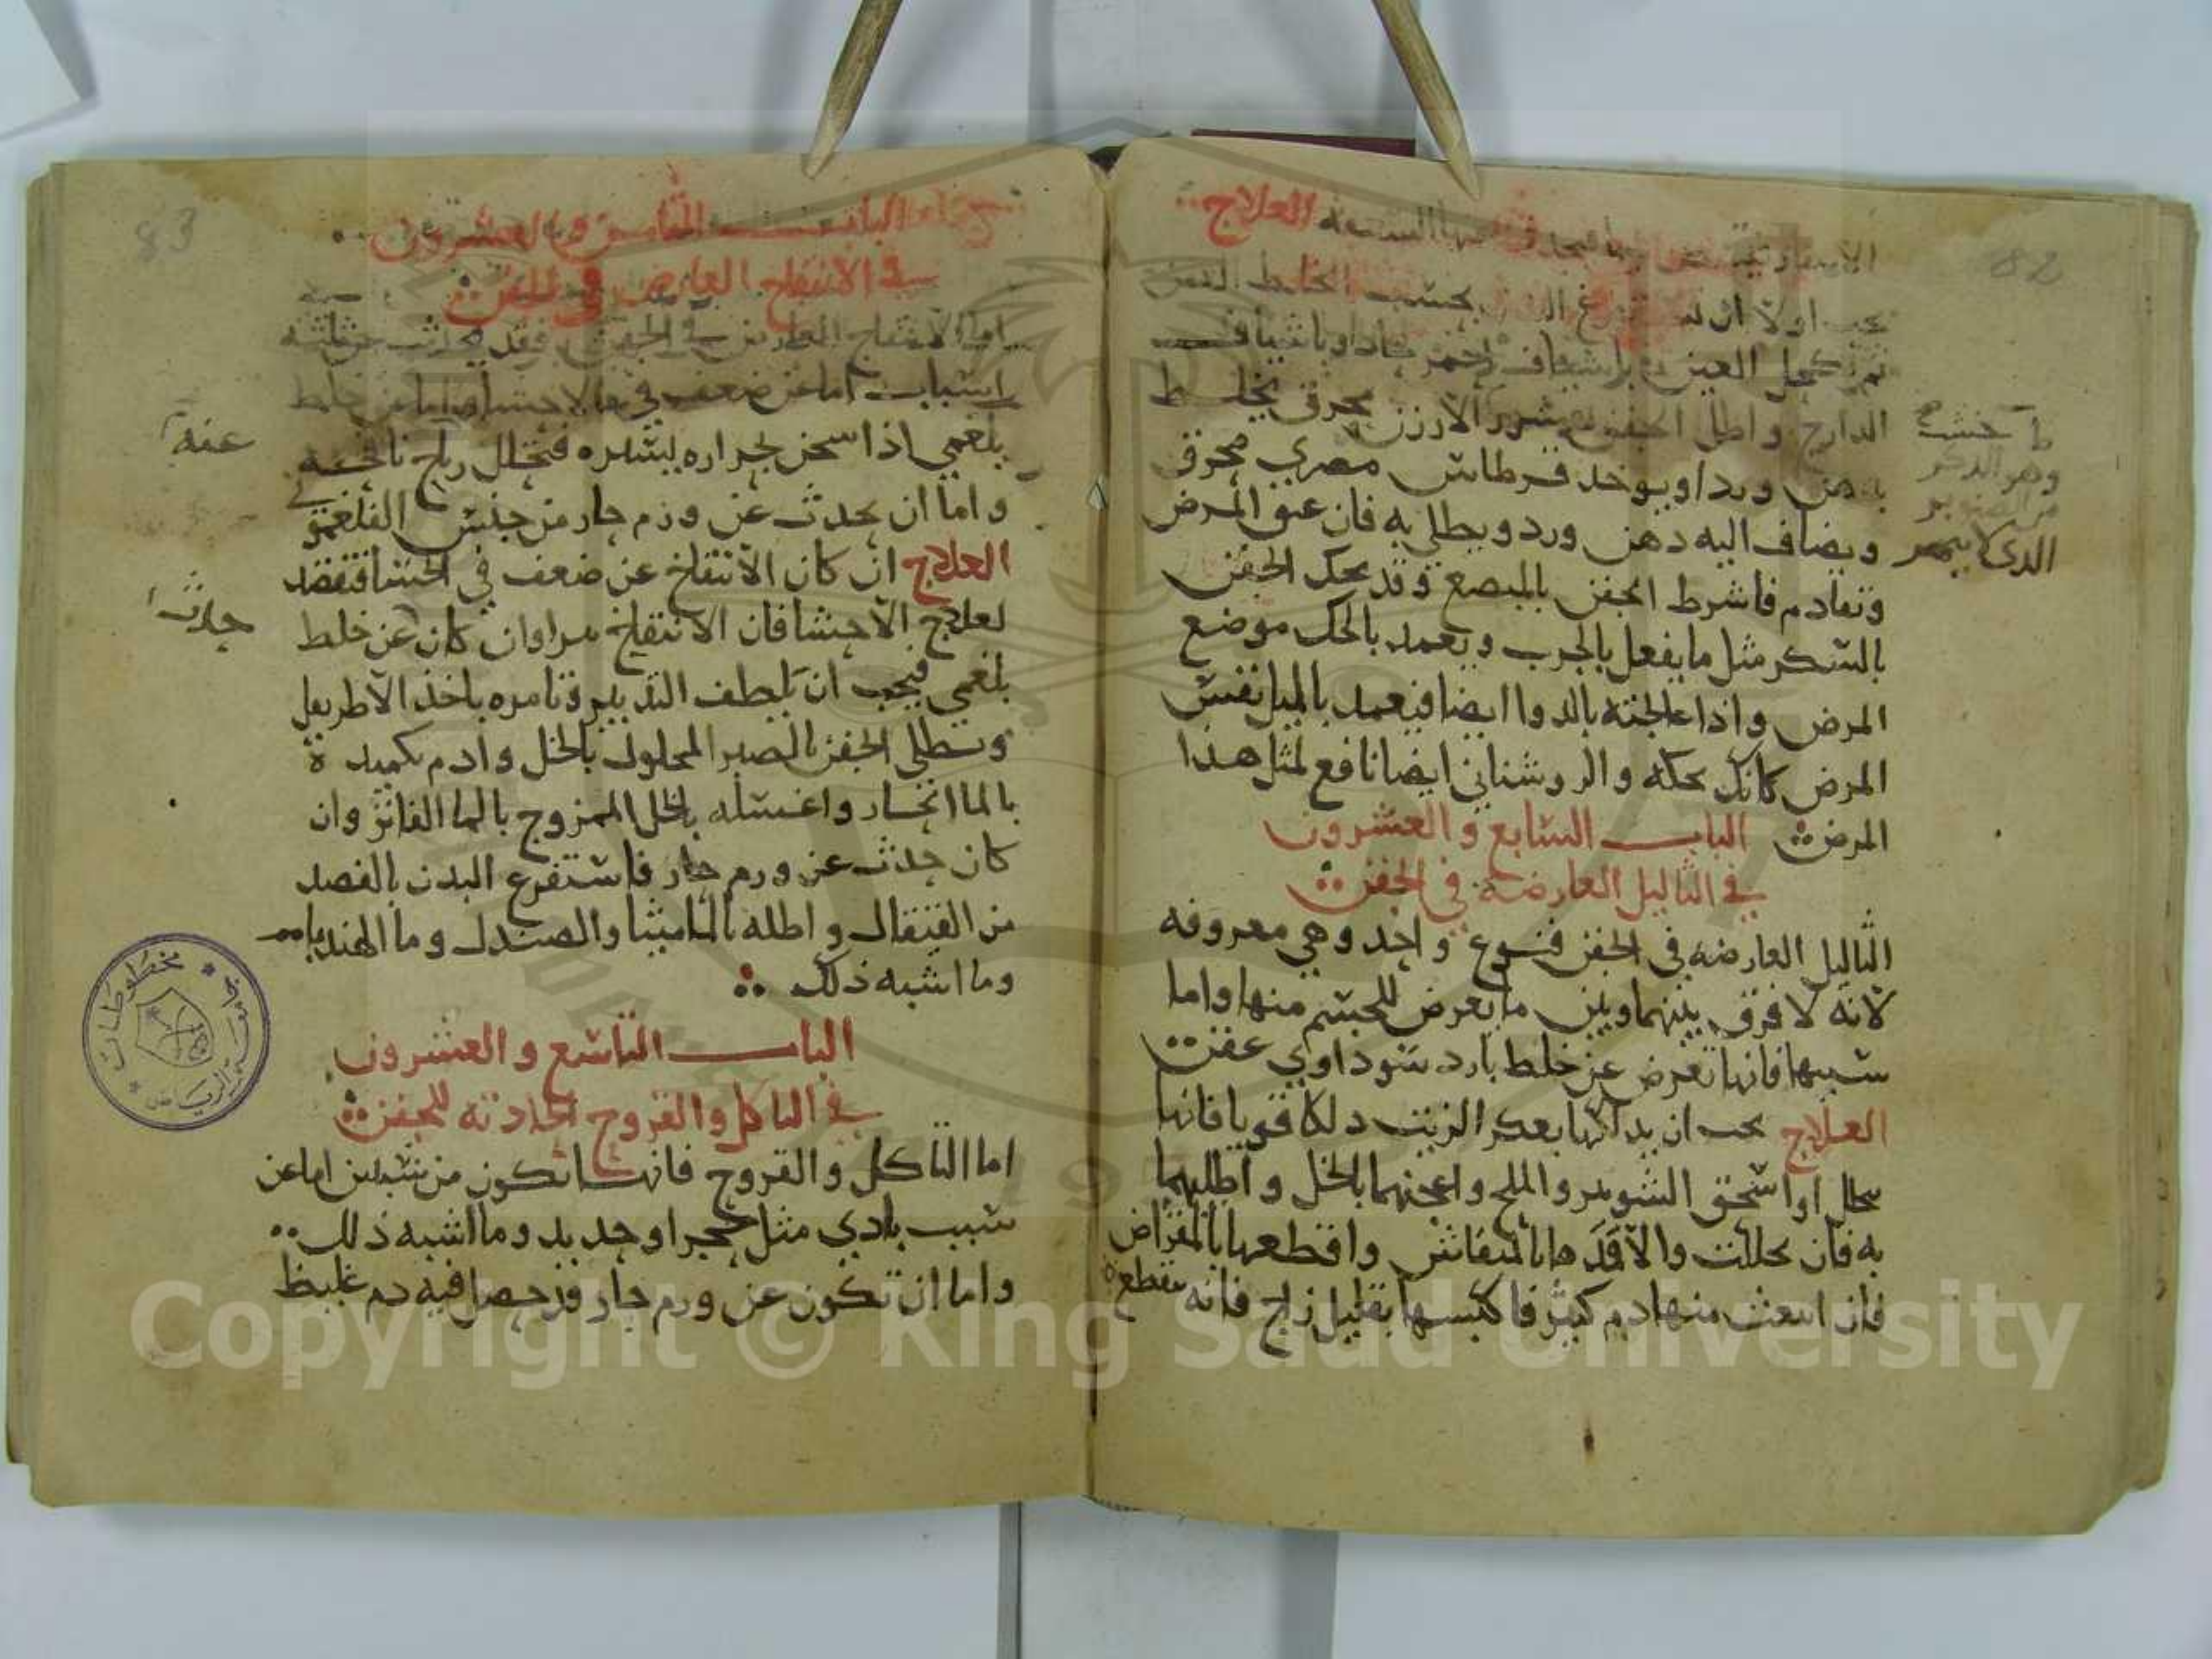 82
العلاج
اولا ان بحسب الخلط
ثم كحل العين احمر حاد او باشياف
الدارج واطل الجفن الارزن محرق يخلط
ورد او يوخد قرطاس مصري محرق
ويضاف اليه دهن ورد ويطلي به فان عتق المرض
وتقادم فاشرط الجفن بالمبضع وقد يحك الجفن
بالسكر مثل ما يفعل بالجرب ويعمد بالحك موضع
المرض واذا عالجته بالدوا ايضا فيعمد بالميل نفس
المرض كانك تحكه والروشناني ايضا نافع لمثل هذا
المرض الباب السابع والعشرون
في الثاليل العارضه في الجفن
الثاليل العارضه في الجفن فنوع واحد وهي معروفه
لانه لا فرق بينها وبين ما يعرض للجسم منها واما
سببها فانها تعرض عن خلط بارد سوداوي عفن
العلاج يجب ان يدلكها بعكر الزيت دلكا قويا فانها
تحلل او اسحق الشونيز والملح واعجنهما بالخل واطليهما
به فان تحللت والا فمدها بالمنقاش واقطعها بالمقراض
فان انبعث منها دم كثير فاكبسها بقليل زاج فانه يقطعه
خشب
وهو الذكر
من الصنوبر
الذي لا يثمر
83
الباب الثامن والعشرون
في الانتفاخ العارض في الجفن
اما الانتفاخ العارض في الجفن فقد يحدث عن ثلثه
اسباب اما عن ضعف في الاحشا واما عن خلط
بلغمي اذا سخن لحراره يسيره فتحلل رياح نافخه
واما ان يحدث عن ورم حار من جنس الفلغموني
العلاج ان كان الانتفاخ عن ضعف في الحشا فتقصد
لعلاج الاحشا فان الانتفاخ يبرا وان كان عن خلط
بلغمي فيجب ان يلطف التدبير وتامره باخذ الاطريفل
وتطلي الجفن بالصبر المحلول بالخل وادم تكميده
بالما الحار واغسله بالخل الممزوج بالما الفاتر وان
كان حدث عن ورم حار فاستفرغ البدن بالفصد
من القيفال واطله بالماميثا والصندل وما الهندبا
وما اشبه ذلك
الباب التاسع والعشرون
في التاكل والقروح الحادثه للجفن
اما التاكل والقروح فانها تكون من شيئين اما عن
سبب بادي مثل حجر او حديد وما اشبه ذلك
واما ان تكون عن ورم حار قد حصل فيه دم غليظ
عنه
حادث
مخطوطات
الرياض
Copyright © King Saud University